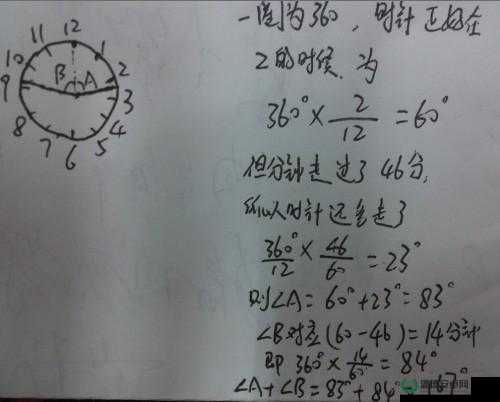 12
11
1
10
2
B
A
9
3
8
4
7
5
6
一圈为360°，时针正好在
2的时候，为
360° × 2/12 = 60°
但分针走过了46分，
所以时针还多走了
360°/12 × 46/60 = 23°
则∠A = 60° + 23° = 83°
∠B对应(60-46) = 14分针
即 360° × 14/60 = 84°
∠A + ∠B = 83° + 84° = 167°